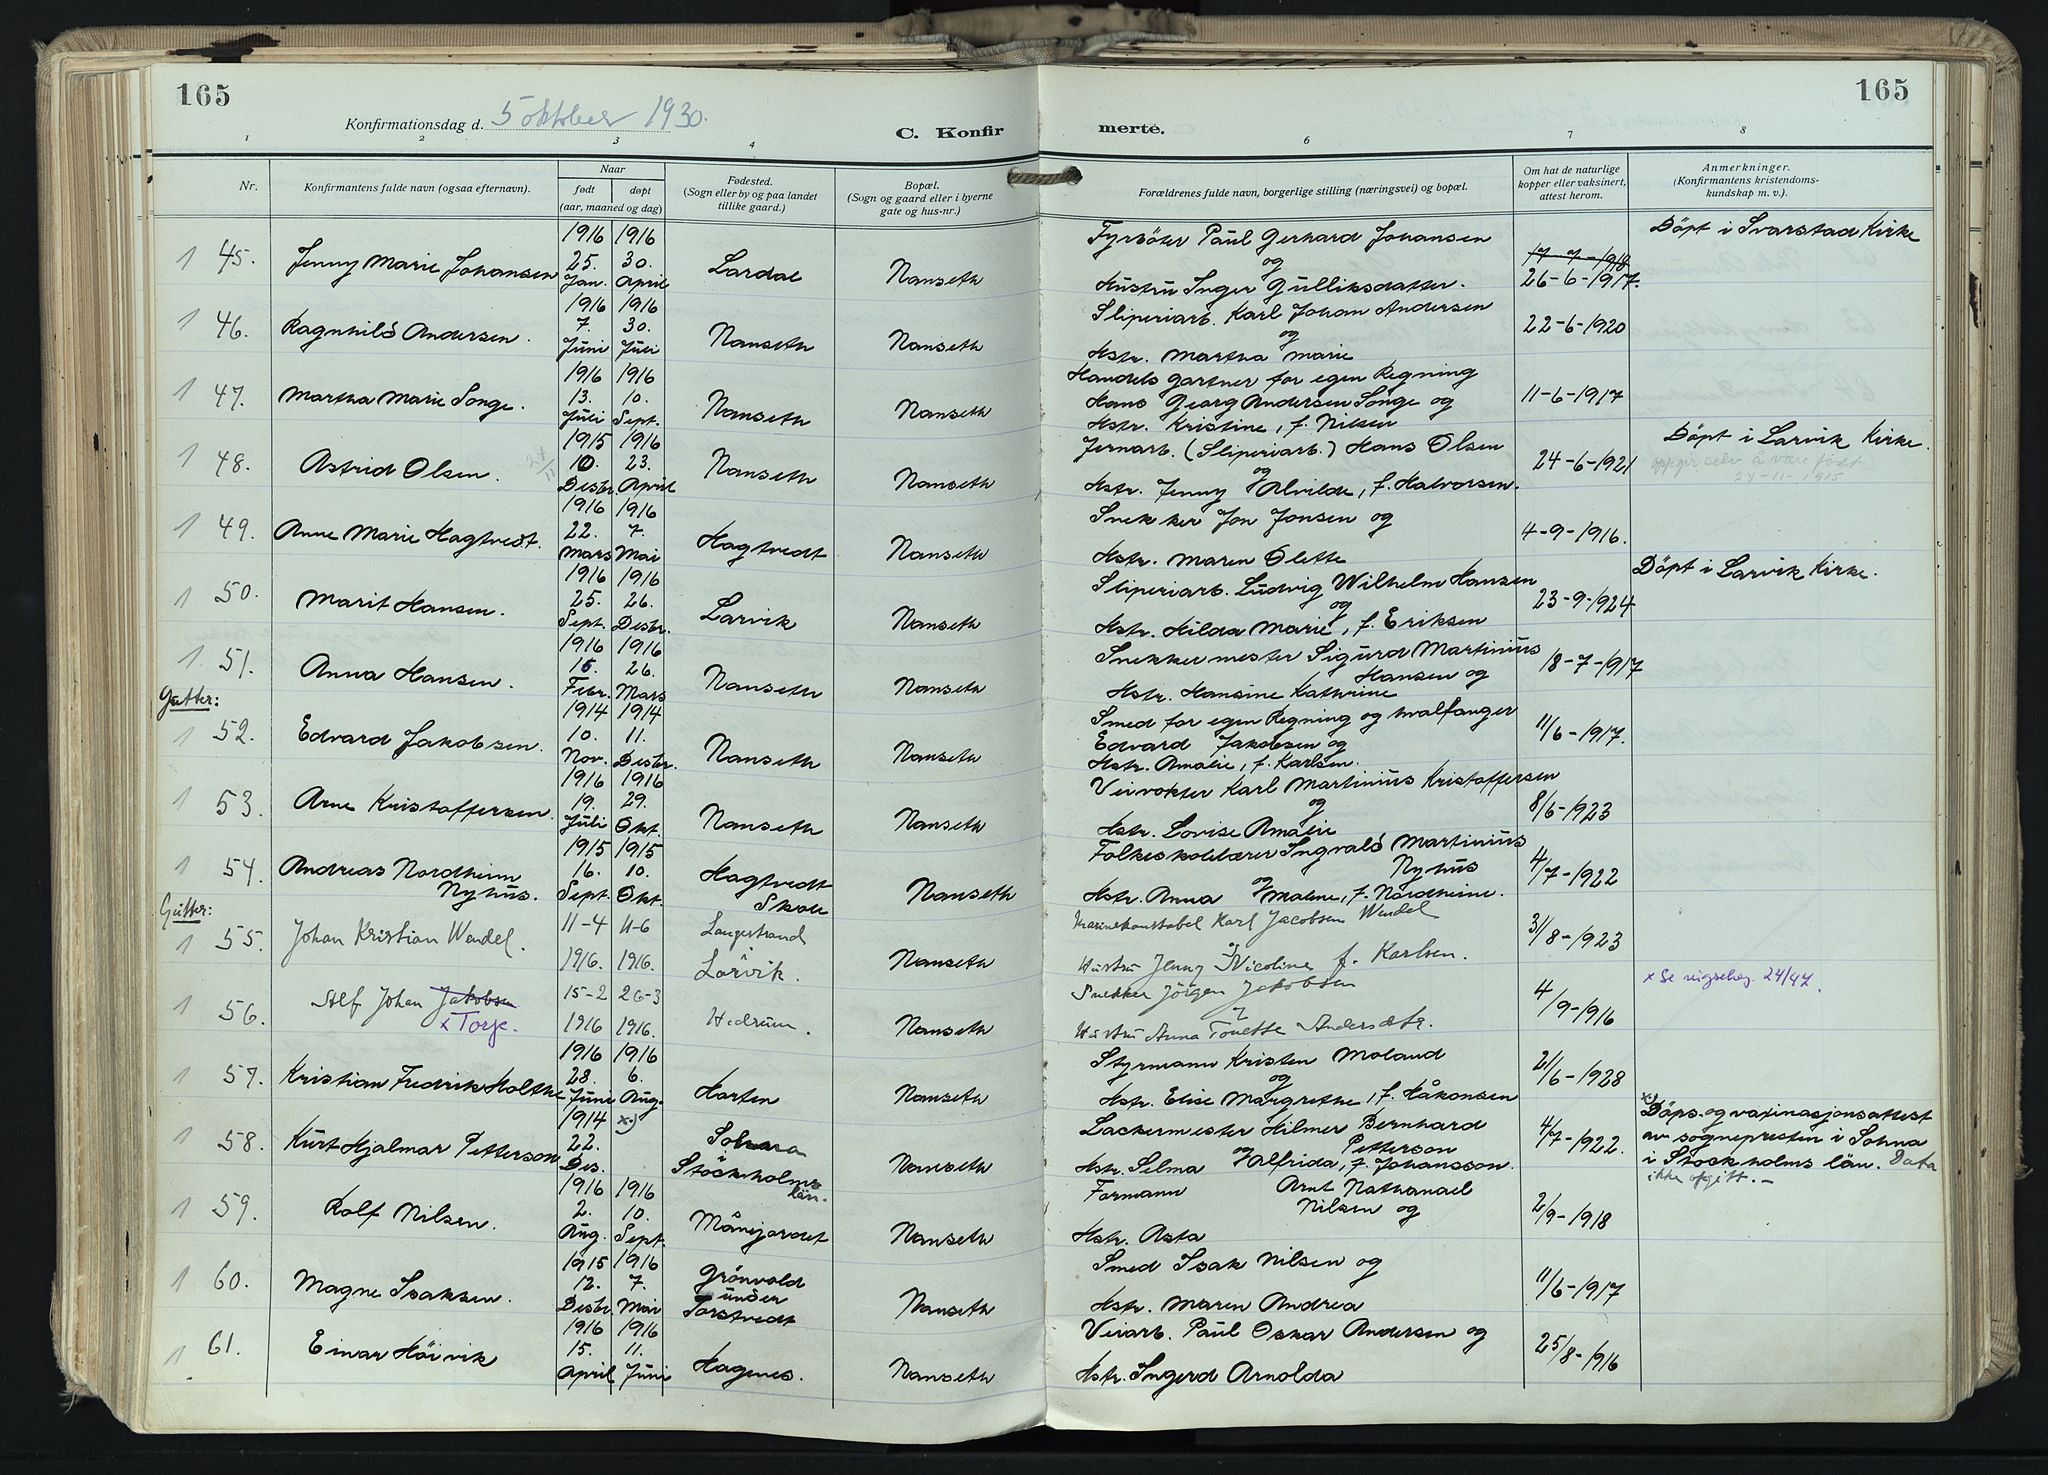 165
165
Konfirmationsdag d. 5 oktober 1930.
C. Konfir
merte.
1 2 3 4 6 7 8
Nr.
Konfirmantens fulde navn (ogsaa efternavn).
Naar
født døpt
(aar, maaned og dag)
Fødested.
(Sogn eller by og paa landet
tillike gaard.)
Bopæl.
(Sogn og gaard eller i byerne
gate og hus-nr.)
Forældrenes fulde navn, borgerlige stilling (næringsvei) og bopæl.
Om hat de naturlige
kopper eller vaksinert,
attest herom.
Anmerkninger.
(Konfirmantens kristendoms-
kundskap m. v.)
1916 1916 Fyrbøter Paul Gerhard Johansen Döpt i Svarstad Kirke
1 45. Jenny Marie Johansen 25. 30. Lardal Nanseth og 17-7-1918
Jan. April Hustru Inger Gulliksdatter. 26-6-1917.
1916 1916 Sliperiarb. Karl Johan Andersen
1 46. Ragnhild Andersen. 7. 30. Nanseth Nanseth og 22-6-1920
Juni Juli Hstr. Martha Marie
1916 1916 Handelsgartner for egen Regning
1 47. Martha Marie Songe. 13. 10. Nanseth Nanseth Hans Georg Andersen Songe og 11-6-1917
Juli Sept. Hstr. Kristine, f. Nilsen
1915 1916 Jernarb. (Sliperiarb.) Hans Olsen Döpt i Larvik Kirke.
1 48. Astrid Olsen. 24/11 10. 23. Nanseth Nanseth og 24-6-1921 oppgir selv å være født
Desbr. April Hstr. Jenny Alvilde, f. Halvorsen. 24-11-1915
1916 1916 Snekker Jon Jonsen og
1 49. Anne Marie Hagtvedt. 22. 7. Hagtvedt Nanseth 4-9-1916.
Mars Mai Hstr. Maren Olette
1916 1916 Sliperiarb. Ludvig Wilhelm Hansen Döpt i Larvik Kirke.
1 50. Marit Hansen. 25. 26. Larvik Nanseth og 23-9-1924
Sept. Desbr. Hstr. Hilda Marie, f. Eriksen
1916 1916 Snekkermester Sigurd Martinius
1. 51. Anna Hansen. 15. 26. Nanseth Nanseth Hansen og 18-7-1917
Febr. Mars Hstr. Hansine Kathrine
Gutter:
1914 1914 Smed for egen Regning og hvalfanger
1 52. Edvard Jakobsen. 10. 11. Nanseth Nanseth Edvard Jakobsen og 11/6-1917.
Nov. Desbr. Hstr. Amalie, f. Karlsen.
1916 1916 Veivokter Karl Martinius Kristoffersen
1 53. Arne Kristoffersen. 19. 29. Nanseth Nanseth og 8/6-1923
Juli Okt. Hstr. Lovise Amalie
1915 1915 Folkeskolelærer Ingvald Martinius
1 54. Andreas Nordheim 16. 10. Hagtvedt Nanseth Nyhus 4/7-1922
Nyhus. Sept. Okt. Skole og Hstr. Anna Malene, f. Nordheim.
Gutter:
1 55. Johan Kristian Wendel. 11-4 11-6 Langestrand Nanseth Marinekonstabel Karl Jacobsen Wendel 31/8-1923
1916. 1916. Larvik. og Hustru Jenny Nicoline f. Karlsen.
1 56. Alf Johan Jakobsen 15-2 26-3 Hedrum. Nanseth Snekker Jörgen Jakobsen 4/9-1916 x Se 24/47.
x Torje. 1916 1916. Hustru Anna Tonette Andersdtr.
1916 1916 Styrmann Kristen Moland
1 57. Kristian Fredrik Holthe 28. 6. Horten Nanseth og 21/6-1928
Juni Aug. Hstr. Elise Margrethe, f. Håkonsen
1914 x) Lackermester Hilmer Bernhard x) Döps- og vaxinasjonsattest
1 58. Kurt Hjalmar Petterson 22. Solna Nanseth Petterson 4/7-1922. av sognepresten i Solna
Des. Stockholms län. og Hstr. Selma Alfrida, f. Johansson. i Stockholms län. Data
ikke opgitt.-
1916 1916 Formann Arnt Nathanael
1 59. Rolf Nilsen. 2. 10. Månejordet Nanseth Nilsen og 2/9-1918
Aug. Sept. Hstr. Asta
1915 1916 Grönvold Smed Isak Nilsen og
1 60. Magne Isaksen. 12. 7. under Nanseth 11/6-1917
Desbr. Mai Torstvedt Hstr. Maren Andrea
1916 1916 Veiarb. Paul Oskar Andersen og
1 61. Einar Höivik 15. 11. Hagenes. Nanseth 25/8-1916
April Juni Hstr. Ingerd Arnolda